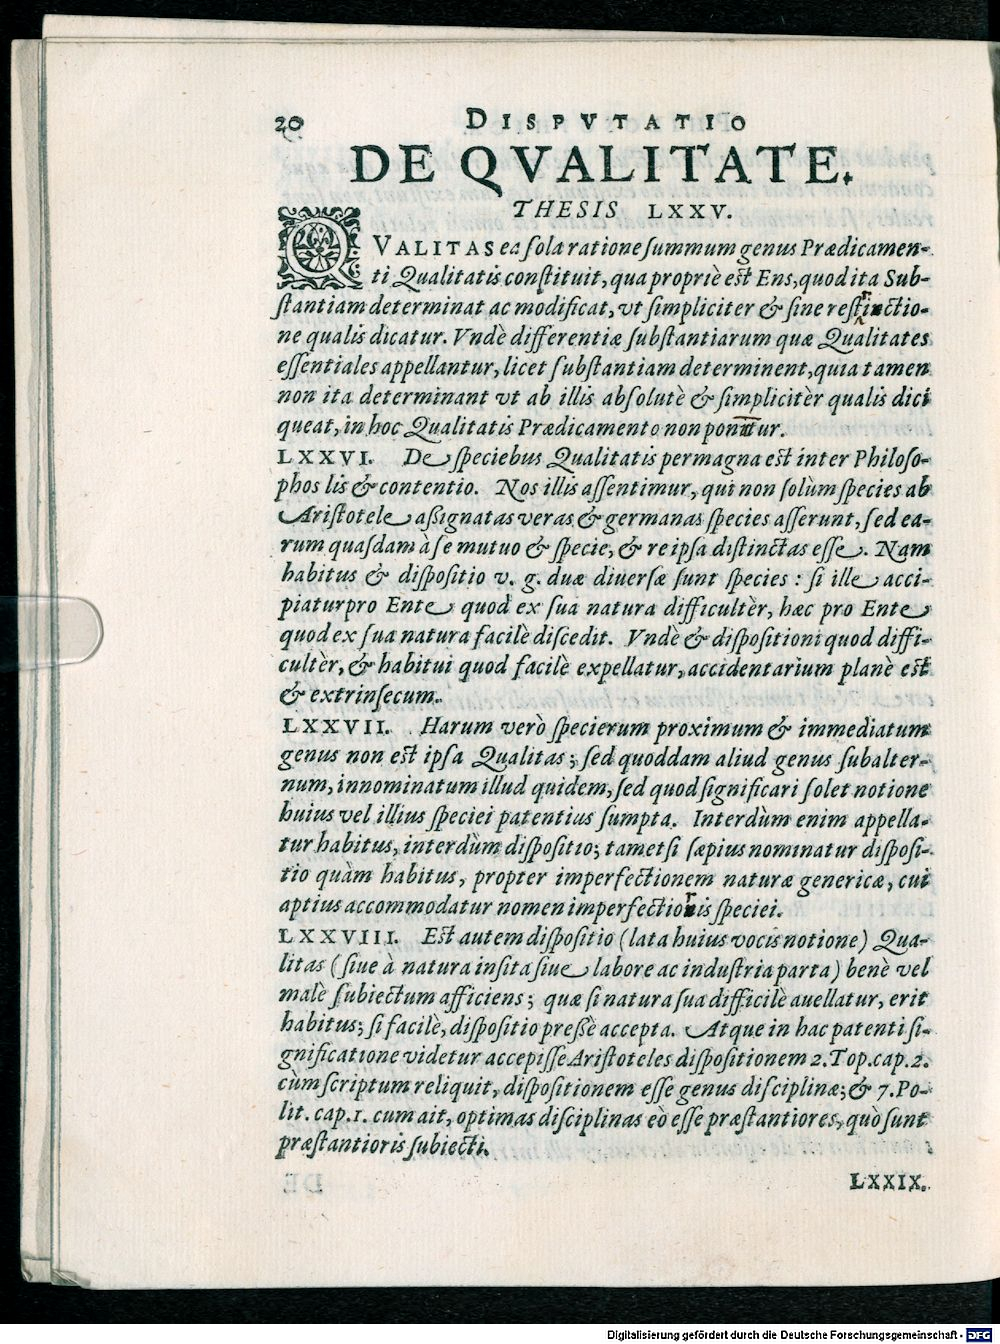 20 DISPVTATIO
DE QVALITATE.
THESIS LXXV.
QVALITAS ea sola ratione summum genus Prædicamen-
ti Qualitatis constituit, qua propriè est Ens, quod ita Sub-
stantiam determinat ac modificat, vt simpliciter & sine restrictio-
ne qualis dicatur. Vndè differentiæ substantiarum quæ Qualitates
essentiales appellantur, licet substantiam determinent, quia tamen
non ita determinant vt ab illis absolutè & simplicitèr qualis dici
queat, in hoc Qualitatis Prædicamento non ponūtur.
LXXVI. De speciebus Qualitatis permagna est inter Philoso-
phos lis & contentio. Nos illis assentimur, qui non solùm species ab
Aristotele aßignatas veras & germanas species asserunt, sed ea-
rum quasdam à se mutuo & specie, & re ipsa distinctas esse. Nam
habitus & dispositio v. g. duæ diuersæ sunt species : si ille acci-
piatur pro Ente quod ex sua natura difficultèr, hæc pro Ente
quod ex sua natura facilè discedit. Vndè & dispositioni quod diffi-
cultèr, & habitui quod facilè expellatur, accidentarium planè est
& extrinsecum.
LXXVII. Harum verò specierum proximum & immediatum
genus non est ipsa Qualitas; sed quoddam aliud genus subalter-
num, innominatum illud quidem, sed quod significari solet notione
huius vel illius speciei patentius sumpta. Interdùm enim appella-
tur habitus, interdùm dispositio; tametsi sæpius nominatur disposi-
tio quàm habitus, propter imperfectionem naturæ genericæ, cui
aptius accommodatur nomen imperfectioris speciei.
LXXVIII. Est autem dispositio (lata huius vocis notione) Qua-
litas (siue à natura insita siue labore ac industria parta) benè vel
malè subiectum afficiens; quæ si natura sua difficilè auellatur, erit
habitus; si facilè, dispositio preßè accepta. Atque in hac patenti si-
gnificatione videtur accepisse Aristoteles dispositionem 2. Top. cap. 2.
cùm scriptum reliquit, dispositionem esse genus disciplinæ; & 7. Po-
lit. cap. 1. cum ait, optimas disciplinas eò esse præstantiores, quò sunt
præstantioris subiecti.
LXXIX.
Digitalisierung gefördert durch die Deutsche Forschungsgemeinschaft - DFG